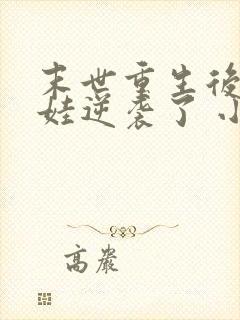 末世重生後
娃逆袭了 小
高嚴